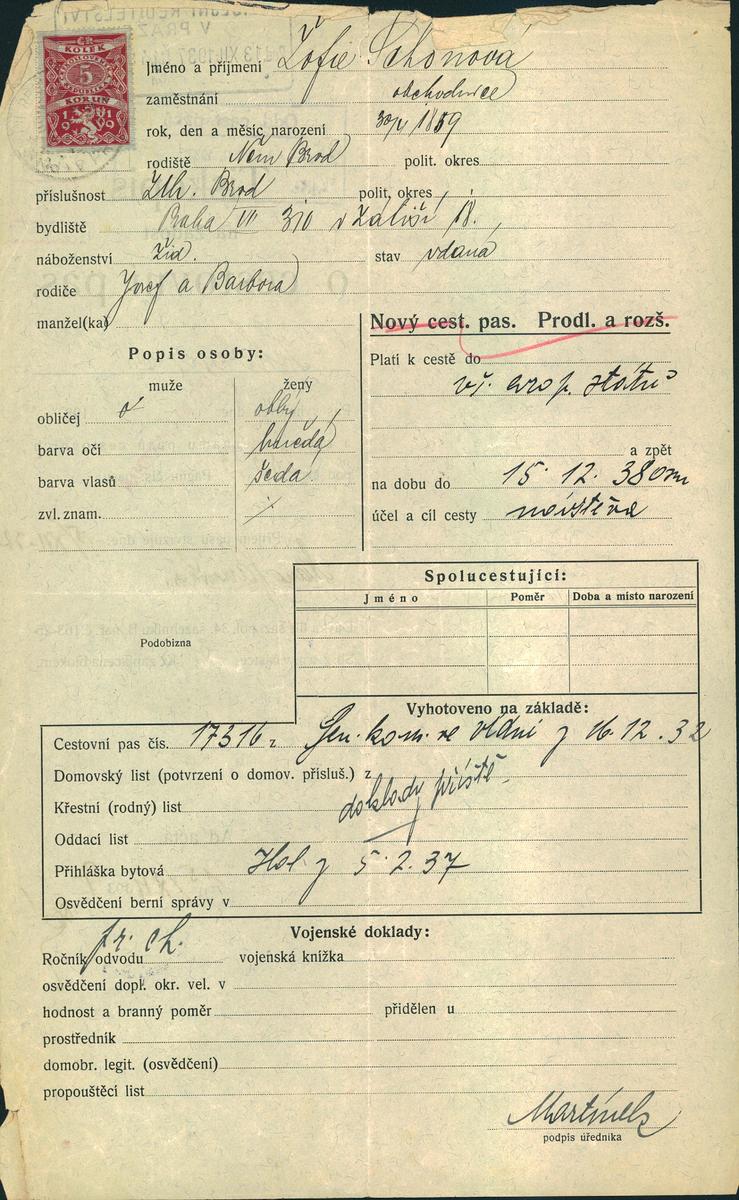 ČR
KOLEK
5
KORUN
1919
Jméno a příjmení Žofie Schönová
zaměstnání obchodnice
rok, den a měsíc narození 1859
rodiště Něm Brod polit. okres
příslušnost Brod polit. okres
bydliště Praha VII 310 v Zátiší 18.
náboženství žid. stav vdaná
rodiče Josef a Barbora
manžel(ka)
Nový cest. pas. Prodl. a rozš.
Popis osoby:
Platí k cestě do
vš. evrop. států
muže ženy
obličej obly
barva očí hnědá
a zpět
barva vlasů šedá
na dobu do 15. 12. 38
zvl. znam.
účel a cíl cesty návštěva
Spolucestující:
Jméno Poměr Doba a místo narození
Podobizna
Vyhotoveno na základě:
Cestovní pas čís. 17316 Gen. kom. ve Vídni z 16. 12. 32
Domovský list (potvrzení o domov. přísluš.) z
Křestní (rodný) list doklady příště
Oddací list
Přihláška bytová Hol. z 5. 2. 37
Osvědčení berní správy v
Vojenské doklady:
Ročník odvodu vojenská knížka
osvědčení dopl. okr. vel. v
hodnost a branný poměr přidělen u
prostředník
domobr. legit. (osvědčení)
propouštěcí list
Martínek
podpis úředníka